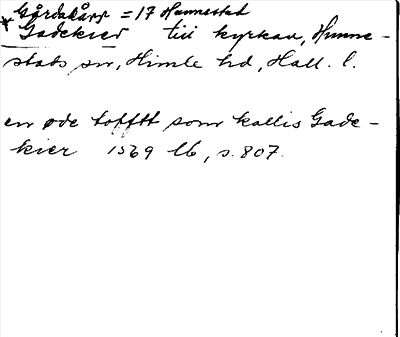 Gårdakärr = 17 Hunnestad
* Gadekier till kyrkan, Hunne-
stads sn, Himle hd, Hall. l.
en øde tofftt som kallis Gade-
kier 1569 Lb, s. 807.